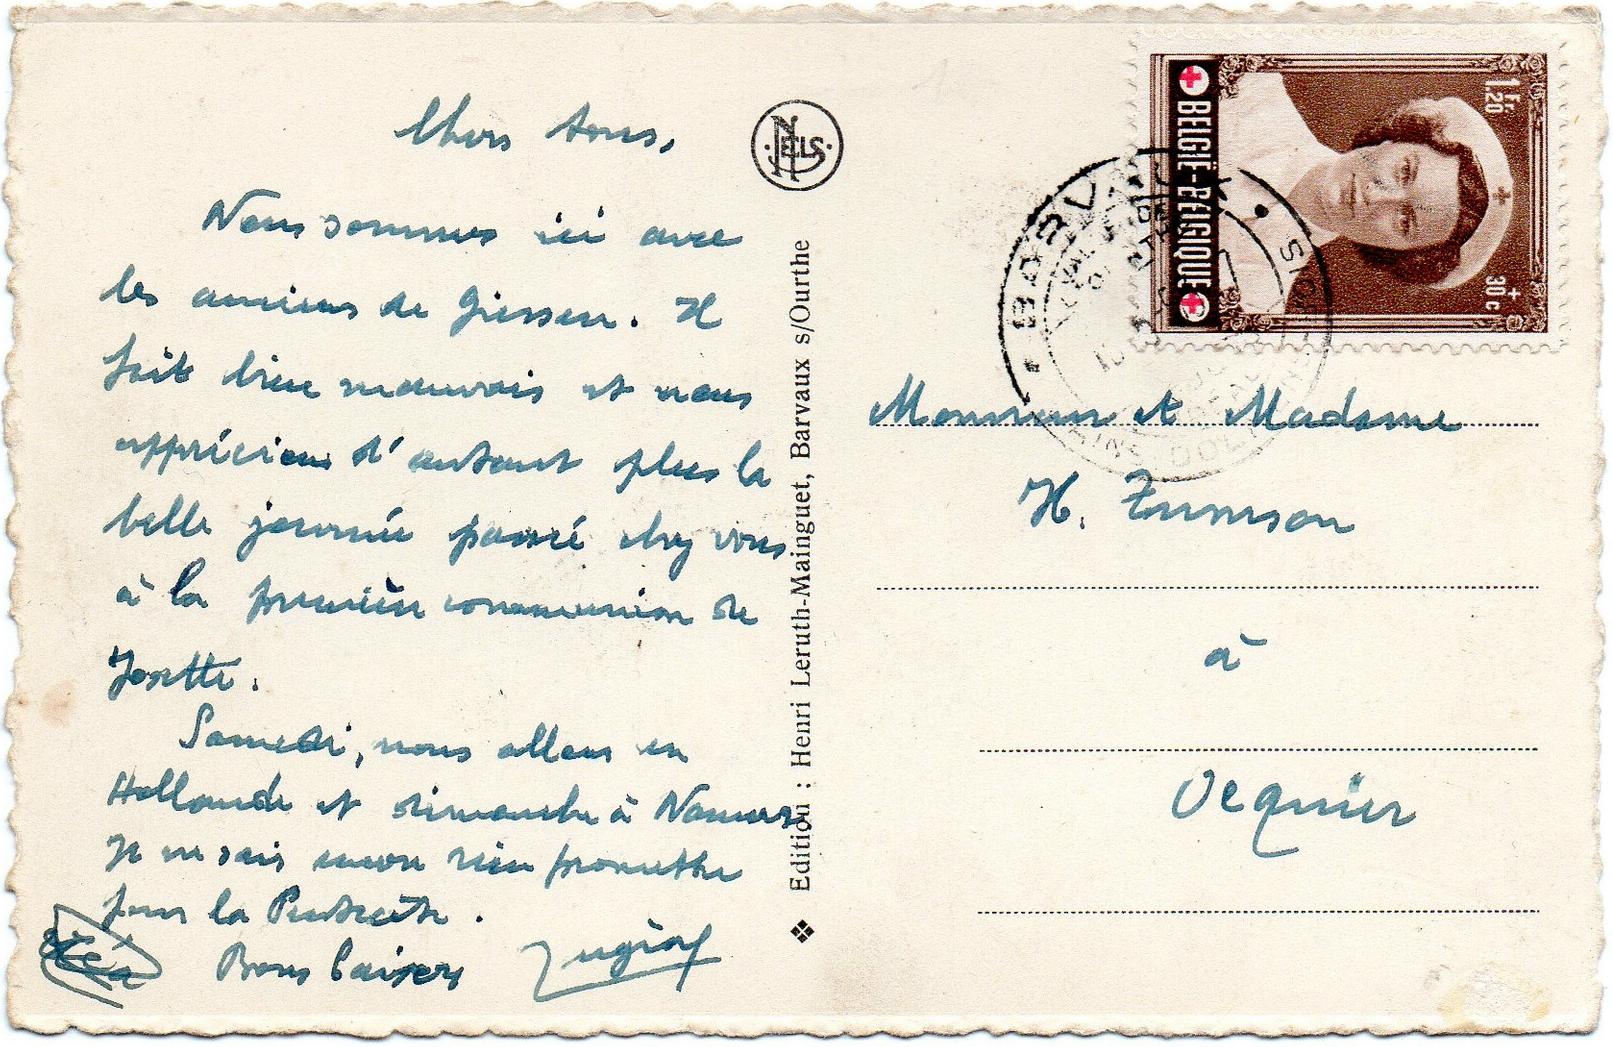 Chers tous,
Nous sommes ici avec
les anciens de Giessen. Il
fait bien mauvais et nous
apprécions d'autant plus la
belle journée passé chez vous
à la première communion de
Josette.
Samedi, nous allons en
Hollande et dimanche à Namur.
Je ne sais encore rien promettre
pour la Pentecôte.
Bons baisers
NELS
Edition : Henri Leruth-Mainguet, Barvaux s/Ourthe
BELGIË-BELGIQUE
1 Fr. 1.20
+ 30 c
Monsieur et Madame
H.
à
Ocquier